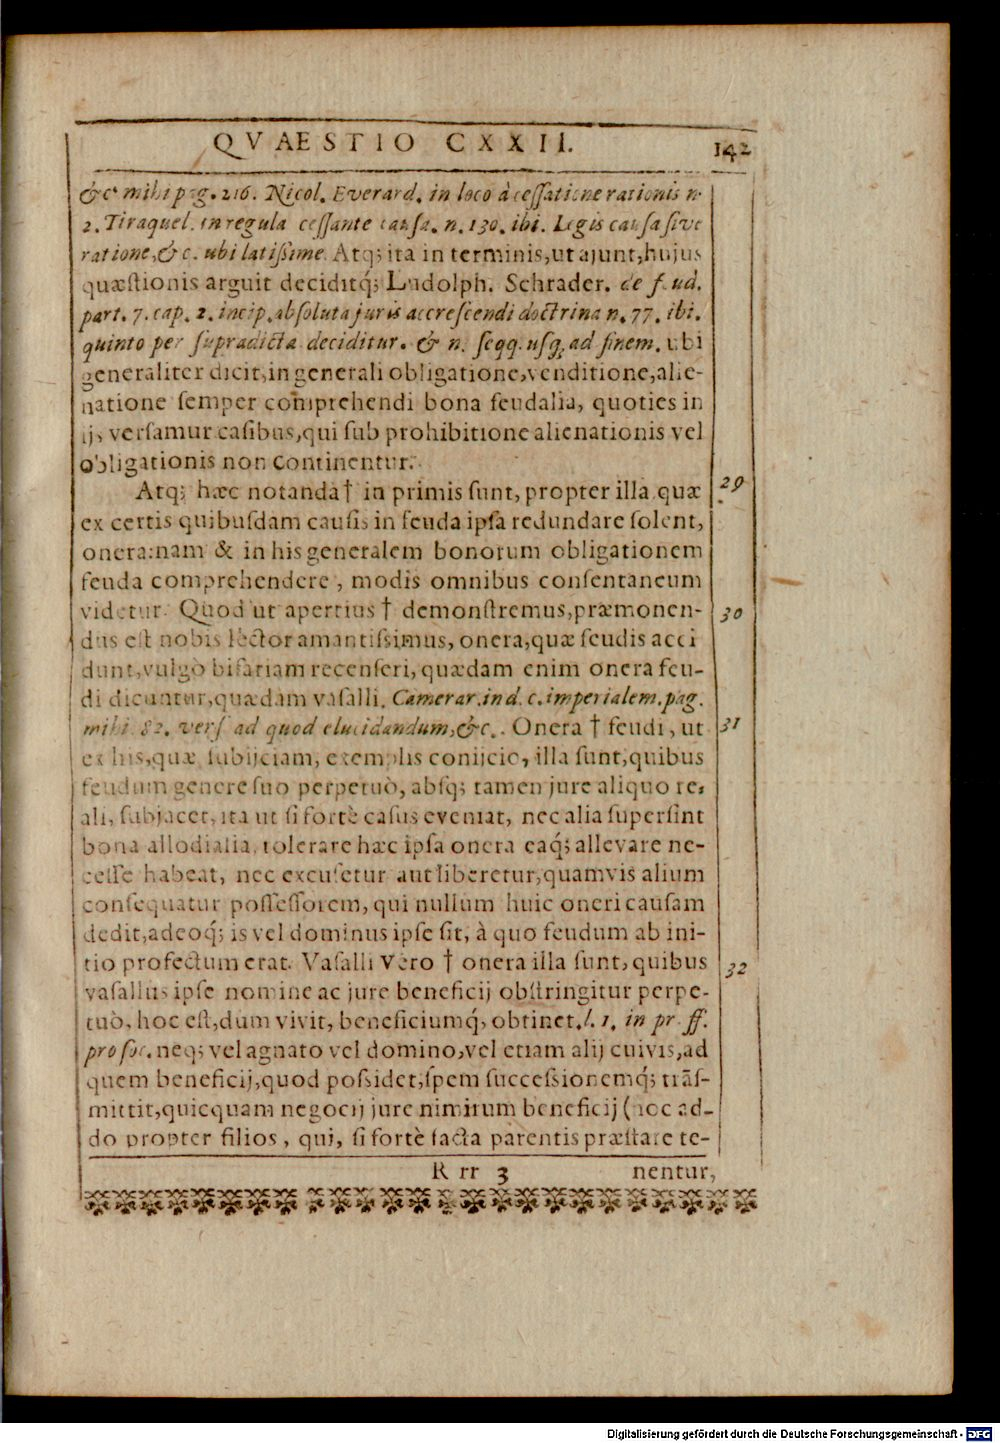 QVAESTIO CXXII. 142
&c. mihi pag. 216. Nicol. Everard. in loco à cessatione rationis n.
2. Tiraquel. in regula cessante causa. n. 130. ibi. Legis causa sive
ratione, &c. ubi latissime. Atq; ita in terminis, ut ajunt, hujus
quæstionis arguit deciditq́; Ludolph. Schrader. de feud.
part. 7. cap. 2. incip. absoluta juris accrescendi doctrina n. 77. ibi.
quinto per supradicta deciditur. & n. seqq. usq; ad finem. ubi
generaliter dicit, in generali obligatione, venditione, alie-
natione semper comprehendi bona feudalia, quoties in
ij, versamur casibus, qui sub prohibitione alienationis vel
obligationis non continentur.
Atq; hæc notanda † in primis sunt, propter illa quæ 29
ex certis quibusdam causis in feuda ipsa redundare solent,
onera: nam & in his generalem bonorum obligationem
feuda comprehendere, modis omnibus consentaneum
videtur. Quod ut apertius † demonstremus, præmonen- 30
dus est nobis lector amantissimus, onera, quæ feudis acci
dunt, vulgò bifariam recenseri, quædam enim onera feu-
di dicuntur, quædam vasalli. Camerar. in d. c. imperialem. pag.
mihi 82. vers. ad quod elucidandum, &c. Onera † feudi, ut 31
ex his, quæ subijciam, exemplis conijcio, illa sunt, quibus
feudum genere suo perpetuò, absq; tamen jure aliquo re-
ali, subjacet, ita ut si fortè casus eveniat, nec alia supersint
bona allodialia, tolerare hæc ipsa onera eaq́; allevare ne-
cesse habeat, nec excusetur aut liberetur, quamvis alium
consequatur possessorem, qui nullum huic oneri causam
dedit, adeoq́; is vel dominus ipse sit, à quo feudum ab ini-
tio profectum erat. Vasalli vero † onera illa sunt, quibus 32
vasallus ipse nomine ac jure beneficij obstringitur perpe-
tuò, hoc est, dum vivit, beneficiumq́, obtinet. l. 1. in pr. ff.
pro soc. neq; vel agnato vel domino, vel etiam alij cuivis, ad
quem beneficij, quod possidet, spem successionemq́; trās-
mittit, quicquam negocij jure nimirum beneficij (hoc ad-
do propter filios, qui, si fortè facta parentis præstare te-
R rr 3 nentur,
Digitalisierung gefördert durch die Deutsche Forschungsgemeinschaft - DFG